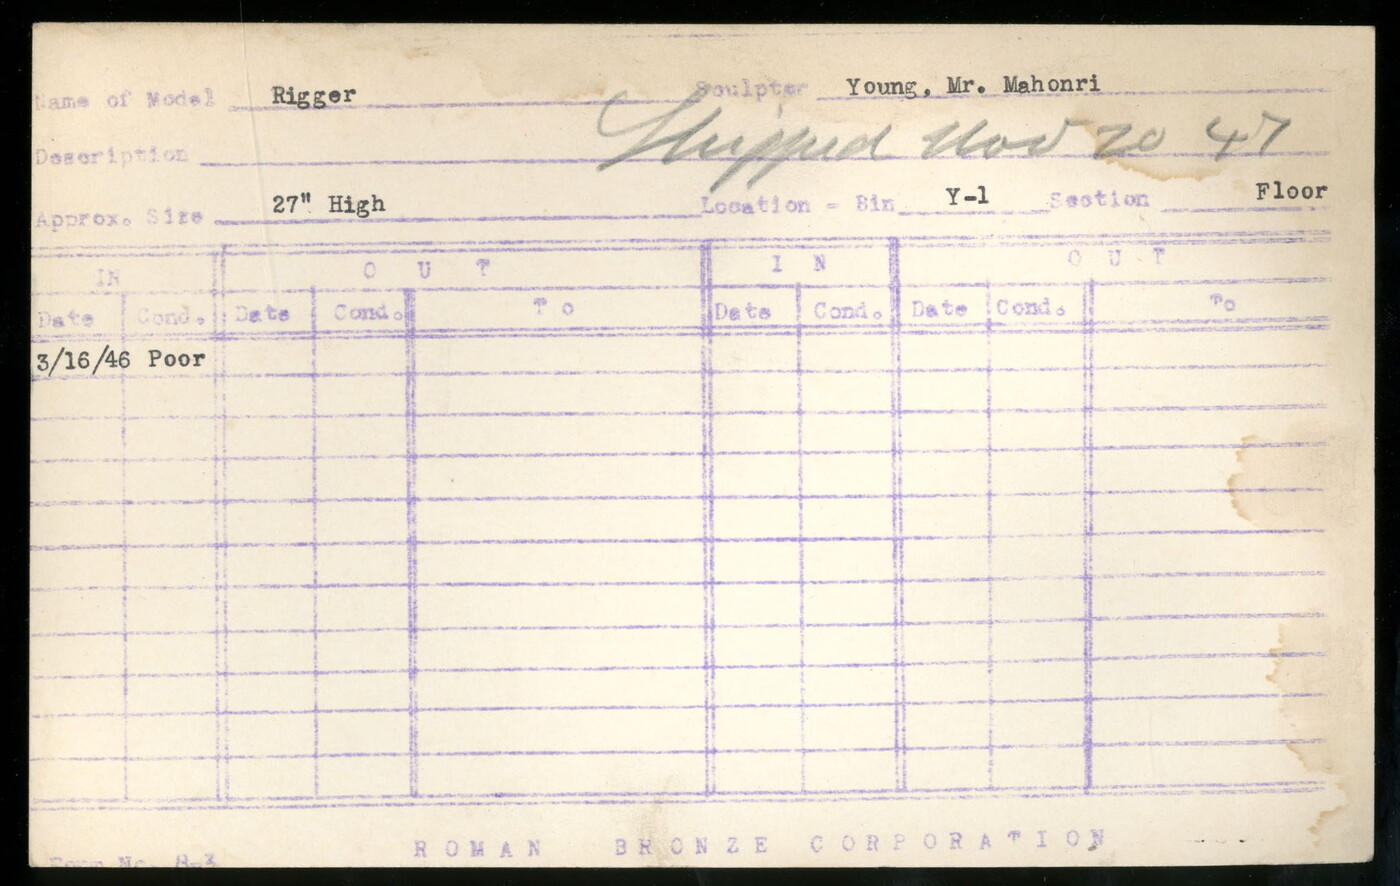 Name of Model Rigger Sculptor Young, Mr. Mahonri
Shipped Nov 20 47
Description
Approx. Size 27" High Location - Bin Y-1 Section Floor
IN OUT IN OUT
Date Cond. Date Cond. To Date Cond. Date Cond. To
3/16/46 Poor
Form No. 8-3 ROMAN BRONZE CORPORATION